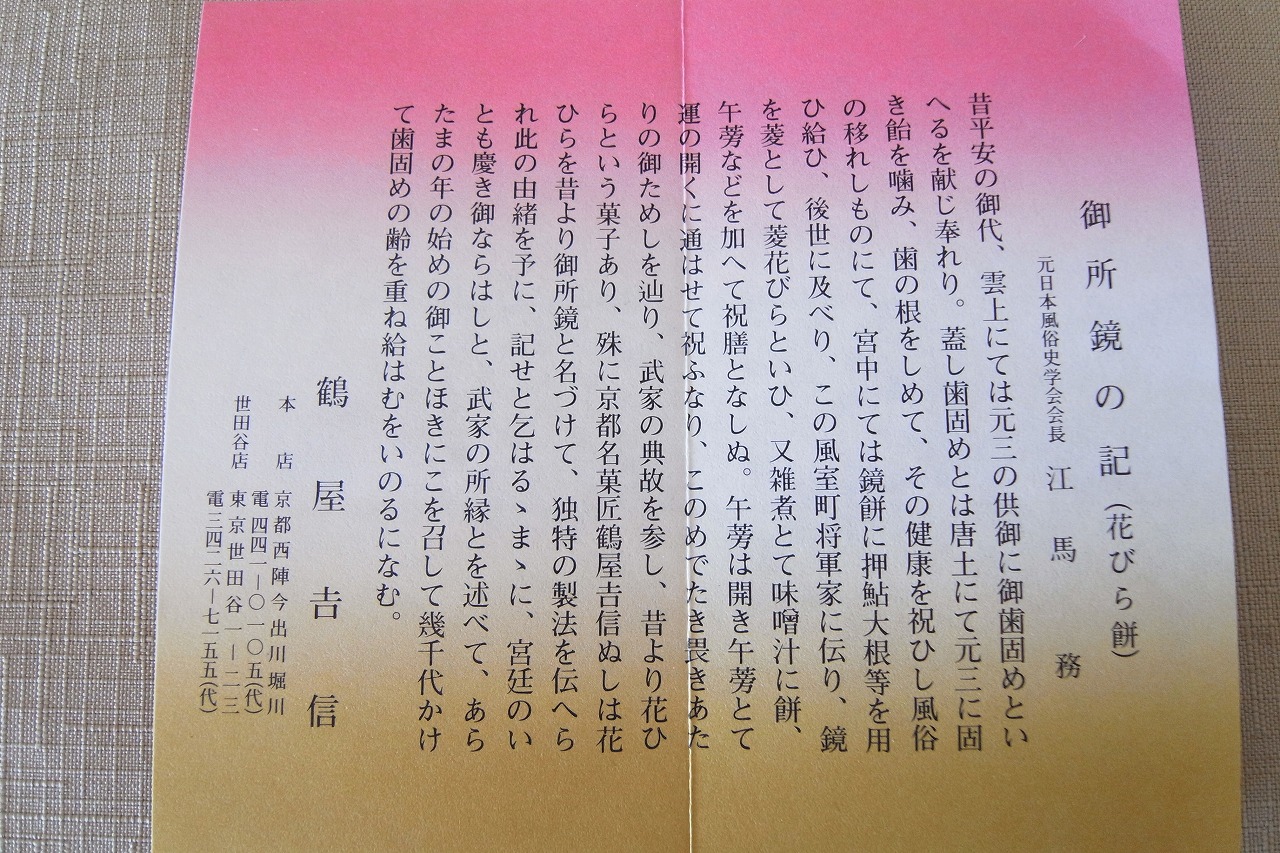 御所鏡の記(花びら餅)
元日本風俗史学会会長 江馬務
昔平安の御代、雲上にては元三の供御に御歯固めとい
へるを献じ奉れり。蓋し歯固めとは唐土にて元三に固
き飴を噛み、歯の根をしめて、その健康を祝ひし風俗
の移れしものにて、宮中にては鏡餅に押鮎大根等を用
ひ給ひ、後世に及べり、この風室町将軍家に伝り、鏡
を菱として菱花びらといひ、又雑煮とて味噌汁に餅、
午蒡などを加へて祝膳となしぬ。午蒡は開き午蒡とて
運の開くに通はせて祝ふなり、このめでたき畏きあた
りの御ためしを辿り、武家の典故を参し、昔より花ひ
らという菓子あり、殊に京都名菓匠鶴屋𠮷信ぬしは花
ひらを昔より御所鏡と名づけて、独特の製法を伝へら
れ此の由緒を予に、記せと乞はるゝまゝに、宮廷のい
とも慶き御ならはしと、武家の所縁とを述べて、あら
たまの年の始めの御ことほきにこを召して幾千代かけ
て歯固めの齢を重ね給はむをいのるになむ。
鶴屋𠮷信
本店 京都西陣今出川堀川
電四四一―〇一〇五(代)
世田谷店 東京世田谷一―二一三
電三四二六―七一五五(代)